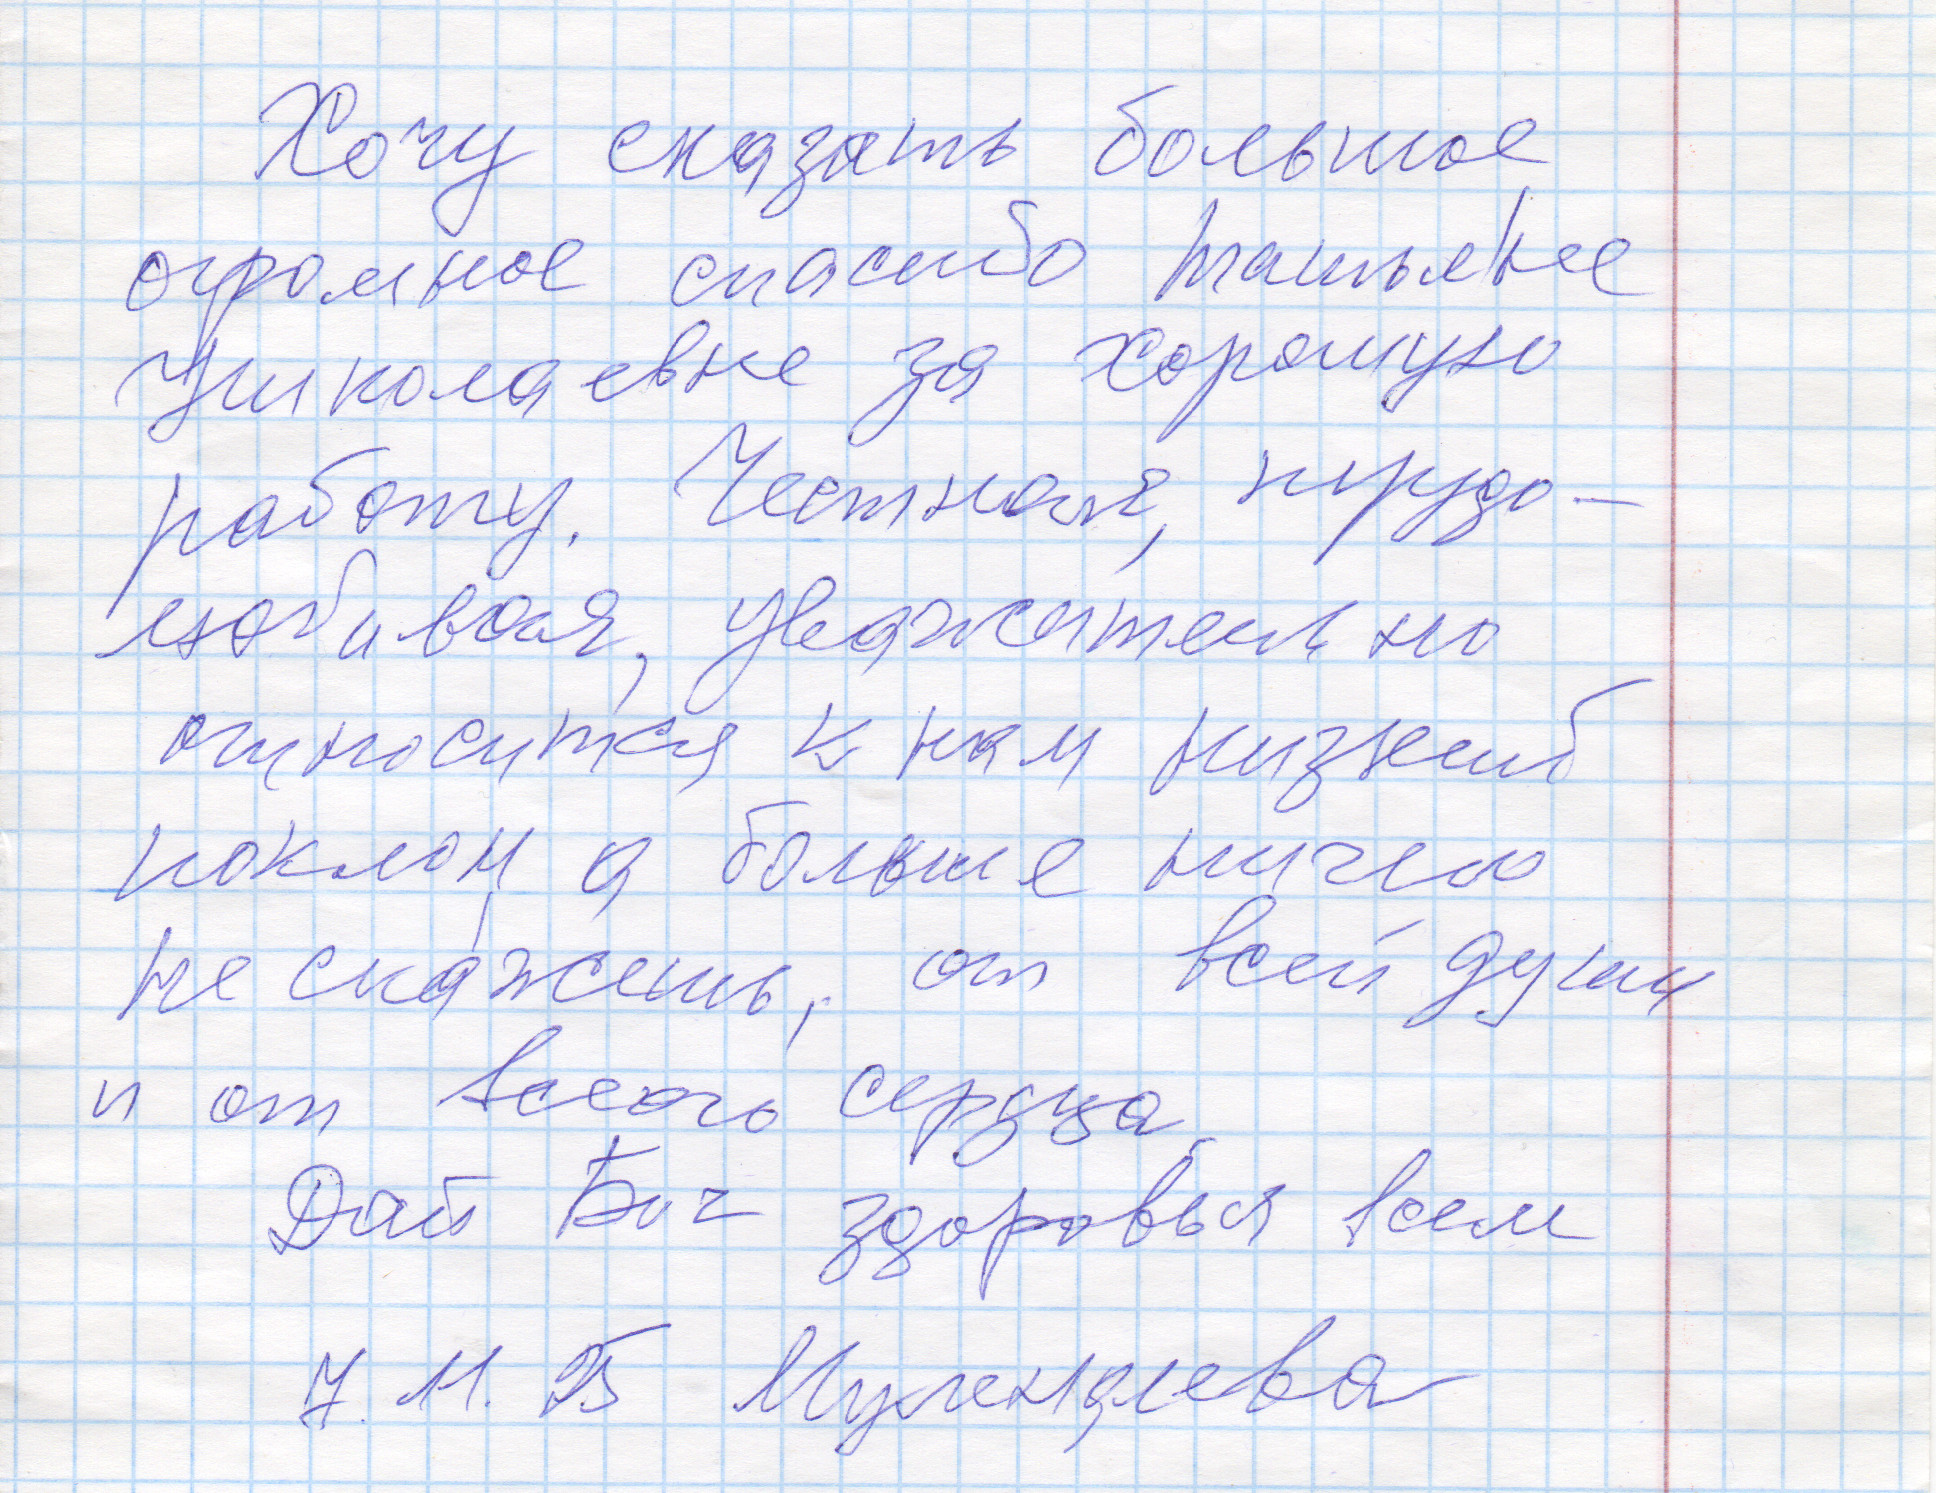 Хочу сказать большое
огромное спасибо Татьяне
Николаевне за хорошую
работу. Честная, трудо-
любивая, уважительно
относится к нам низкий
поклон, а больше ничего
не скажешь, от всей души
и от всего сердца.
Дай Бог здоровья всем
7. 11. 25